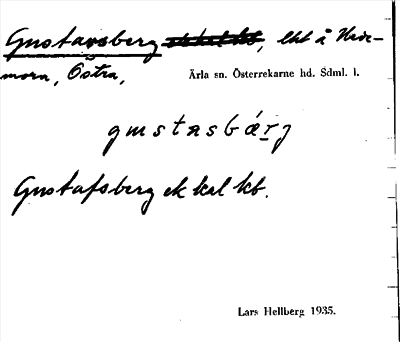 Gustavsberg, lht å Hede-
mora, Östra,
Ärla sn. Österrekarne hd. Sdml. l.
gustasbárj
Gustafsberg ek kal kb.
Lars Hellberg 1935.